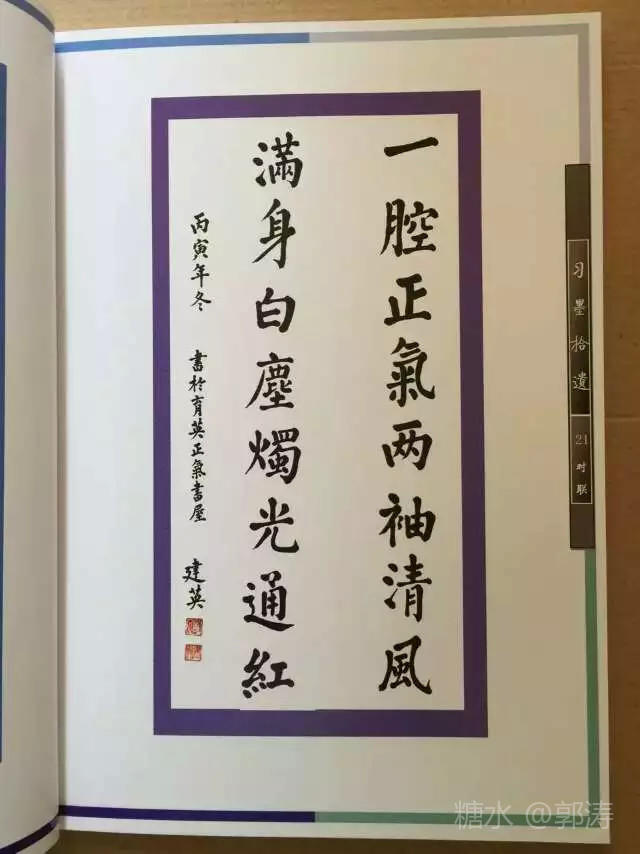 一腔正氣两袖清風
滿身白塵燭光通紅
丙寅年冬 書於育英正氣書屋 建英
习墨拾遺
21 对联
糖水 @郭涛